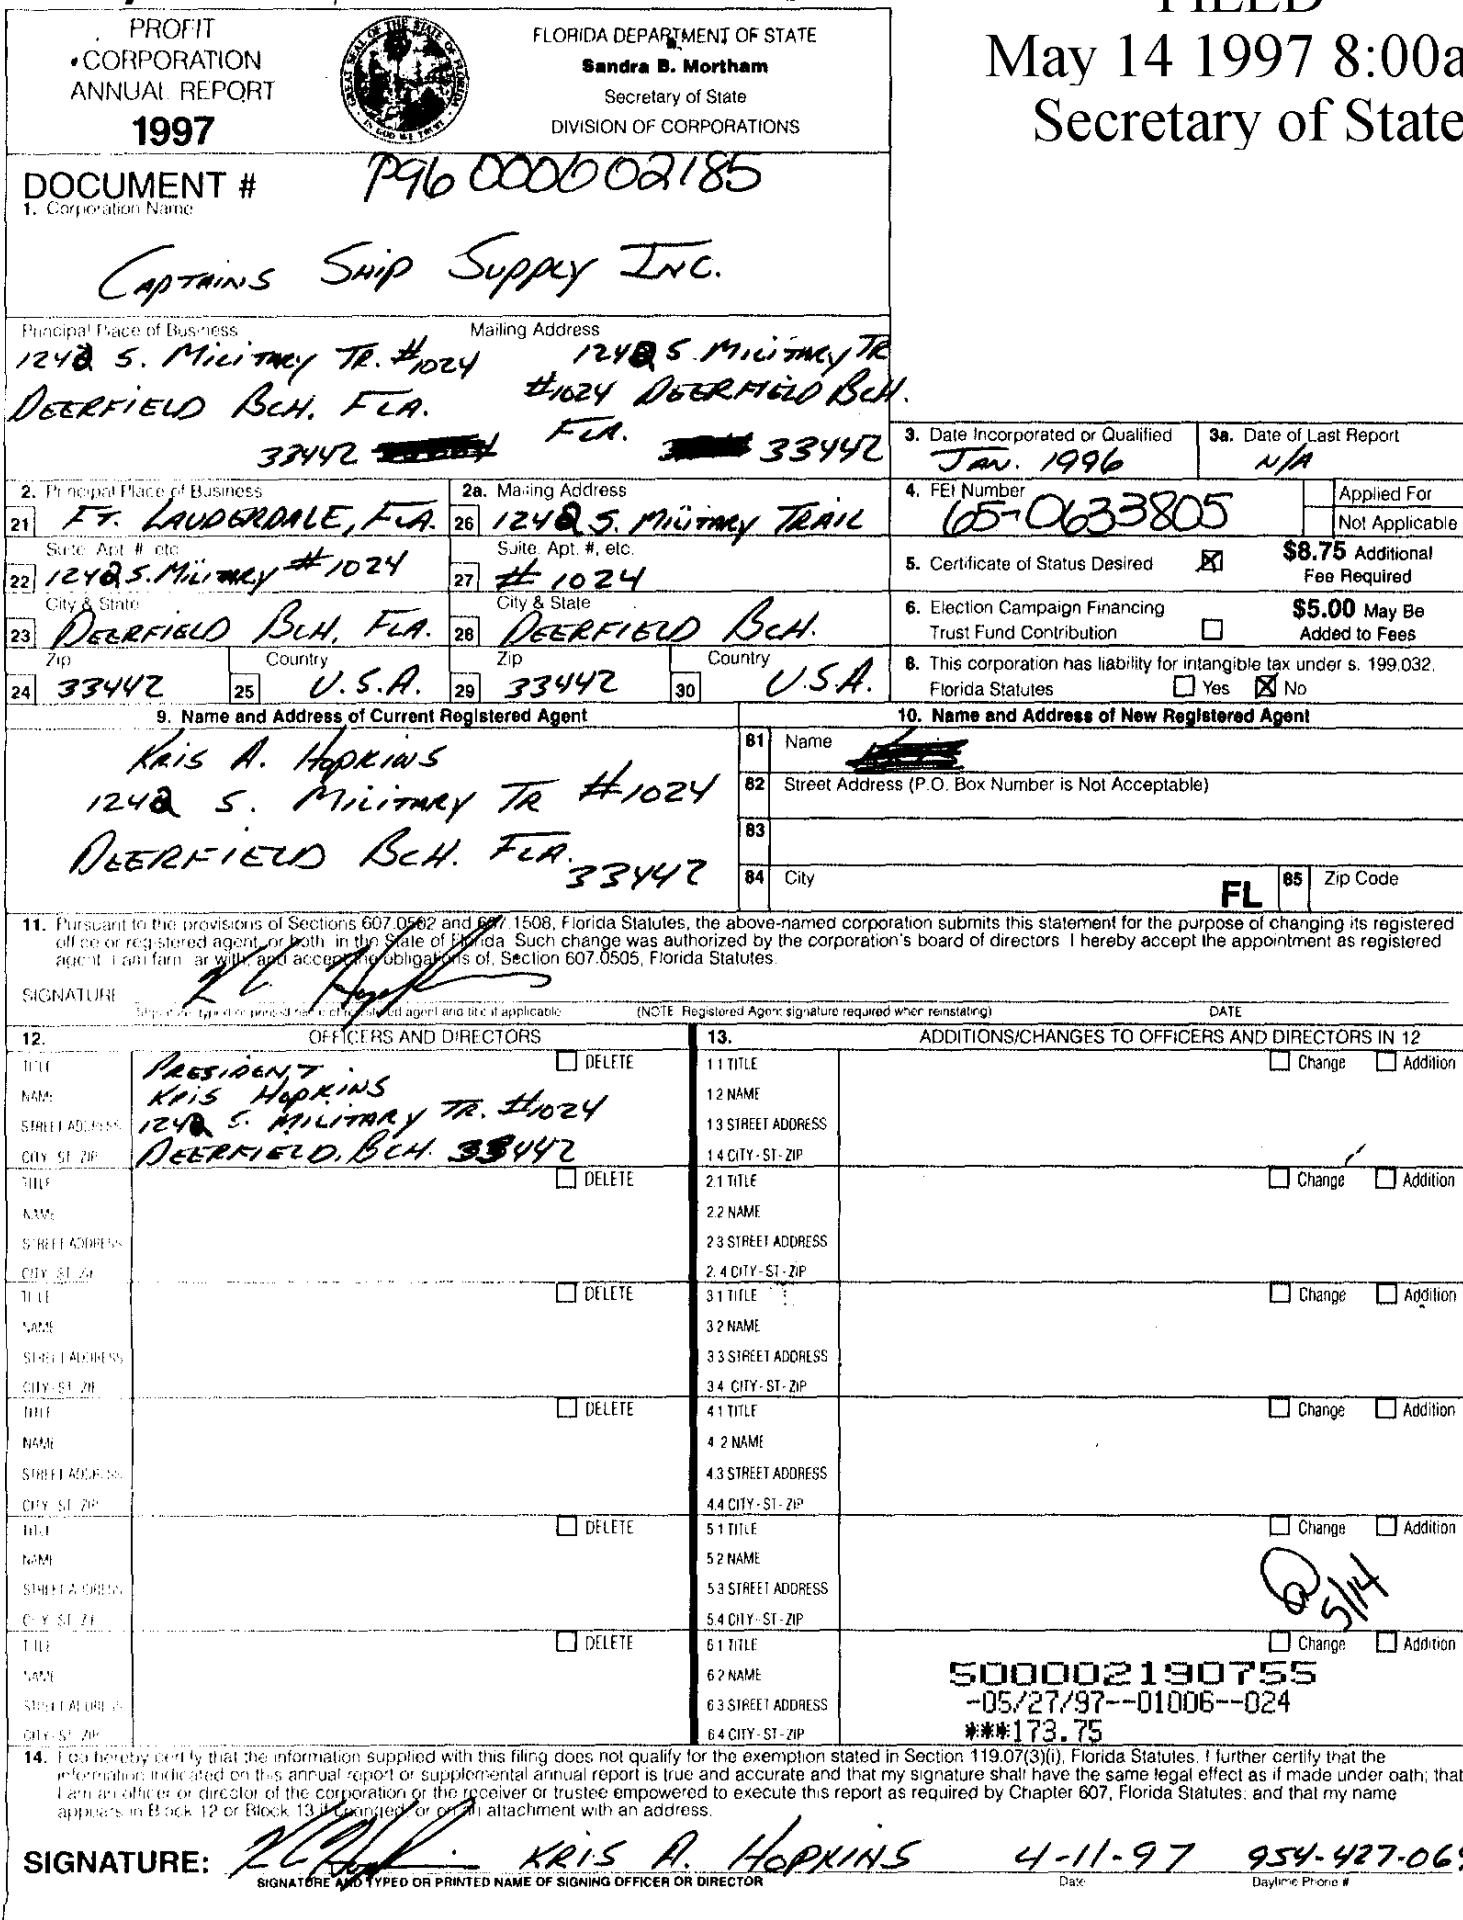 FILED
May 14 1997 8:00a
Secretary of State
PROFIT
CORPORATION
ANNUAL REPORT
1997
GREAT SEAL OF THE STATE OF FLORIDA
IN GOD WE TRUST
FLORIDA DEPARTMENT OF STATE
Sandra B. Mortham
Secretary of State
DIVISION OF CORPORATIONS
DOCUMENT # P96000002185
1. Corporation Name
CAPTAINS SHIP SUPPLY INC.
Principal Place of Business
1242 S. MILITARY TR. #1024
DEERFIELD BCH. FLA.
33442
Mailing Address
1242 S. MILITARY TR
#1024 DEERFIELD BCH.
FLA. 33442
3. Date Incorporated or Qualified
JAN. 1996
3a. Date of Last Report
N/A
2. Principal Place of Business
21 FT. LAUDERDALE, FLA.
2a. Mailing Address
26 1242 S. MILITARY TRAIL
4. FEI Number
65-0633805
Applied For
Not Applicable
Suite, Apt. #, etc.
22 1242 S. MILITARY #1024
Suite, Apt. #, etc.
27 # 1024
5. Certificate of Status Desired
$8.75 Additional
Fee Required
City & State
23 DEERFIELD BCH, FLA.
City & State
28 DEERFIELD BCH.
6. Election Campaign Financing
Trust Fund Contribution
$5.00 May Be
Added to Fees
Zip
24 33442
Country
25 U.S.A.
Zip
29 33442
Country
30 U.S.A.
8. This corporation has liability for intangible tax under s. 199.032,
Florida Statutes Yes No
9. Name and Address of Current Registered Agent
KRIS A. HOPKINS
1242 S. MILITARY TR #1024
DEERFIELD BCH. FLA.
33442
10. Name and Address of New Registered Agent
81 Name
82 Street Address (P.O. Box Number is Not Acceptable)
83
84 City FL 85 Zip Code
11. Pursuant to the provisions of Sections 607.0502 and 607.1508, Florida Statutes, the above-named corporation submits this statement for the purpose of changing its registered
office or registered agent, or both, in the State of Florida. Such change was authorized by the corporation's board of directors. I hereby accept the appointment as registered
agent. I am familiar with, and accept the obligations of, Section 607.0505, Florida Statutes.
SIGNATURE
Signature, typed or printed name of registered agent and title if applicable (NOTE Registered Agent signature required when reinstating) DATE
12. OFFICERS AND DIRECTORS
13. ADDITIONS/CHANGES TO OFFICERS AND DIRECTORS IN 12
TITLE PRESIDENT DELETE
NAME KRIS HOPKINS
STREET ADDRESS 1242 S. MILITARY TR. #1024
CITY-ST-ZIP DEERFIELD, BCH. 33442
1.1 TITLE Change Addition
1.2 NAME
1.3 STREET ADDRESS
1.4 CITY-ST-ZIP
TITLE DELETE
NAME
STREET ADDRESS
CITY-ST-ZIP
2.1 TITLE Change Addition
2.2 NAME
2.3 STREET ADDRESS
2.4 CITY-ST-ZIP
TITLE DELETE
NAME
STREET ADDRESS
CITY-ST-ZIP
3.1 TITLE Change Addition
3.2 NAME
3.3 STREET ADDRESS
3.4 CITY-ST-ZIP
TITLE DELETE
NAME
STREET ADDRESS
CITY-ST-ZIP
4.1 TITLE Change Addition
4.2 NAME
4.3 STREET ADDRESS
4.4 CITY-ST-ZIP
TITLE DELETE
NAME
STREET ADDRESS
CITY-ST-ZIP
5.1 TITLE Change Addition
5.2 NAME
5.3 STREET ADDRESS
5.4 CITY-ST-ZIP
5/14
TITLE DELETE
NAME
STREET ADDRESS
CITY-ST-ZIP
6.1 TITLE Change Addition
6.2 NAME
6.3 STREET ADDRESS
6.4 CITY-ST-ZIP
500002190755
-05/27/97--01006--024
***173.75
14. I do hereby certify that the information supplied with this filing does not qualify for the exemption stated in Section 119.07(3)(i), Florida Statutes. I further certify that the
information indicated on this annual report or supplemental annual report is true and accurate and that my signature shall have the same legal effect as if made under oath; that
I am an officer or director of the corporation or the receiver or trustee empowered to execute this report as required by Chapter 607, Florida Statutes; and that my name
appears in Block 12 or Block 13 if changed, or on an attachment with an address.
SIGNATURE: KRIS A. HOPKINS 4-11-97 954-427-06
SIGNATURE AND TYPED OR PRINTED NAME OF SIGNING OFFICER OR DIRECTOR Date Daytime Phone #